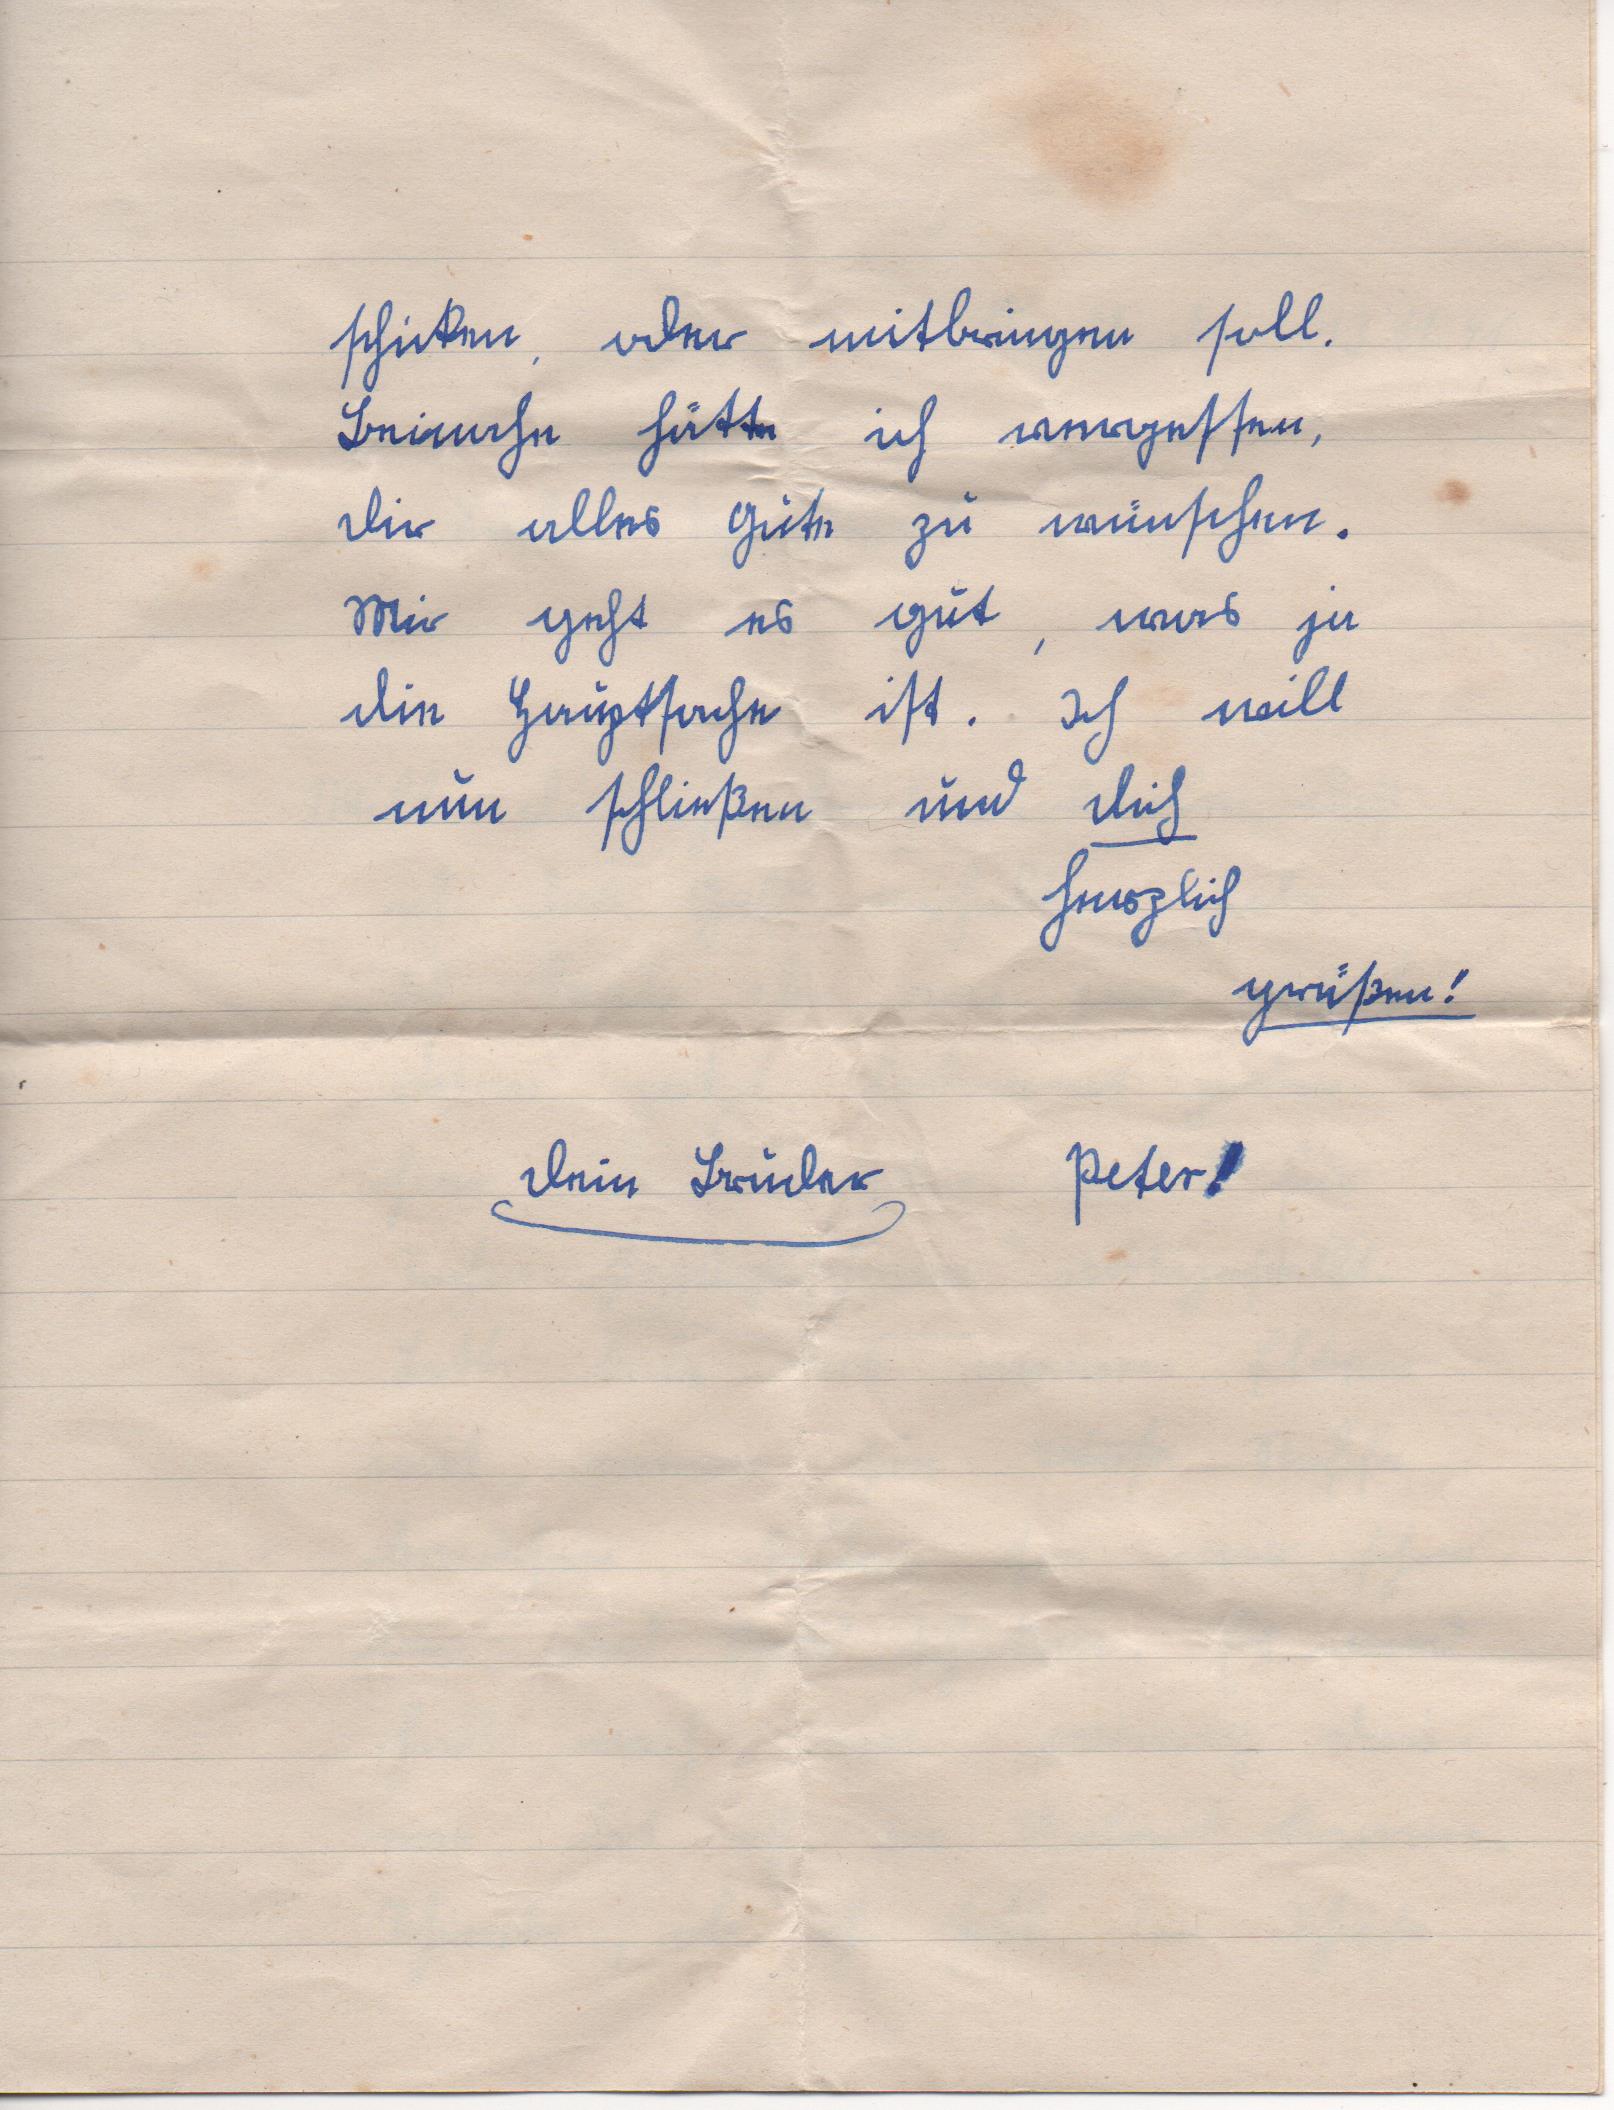 schicken, oder mitbringen soll.
Beinahe hätte ich vergessen,
dir alles Gute zu wünschen.
Mir geht es gut, was ja
die Hauptsache ist. Ich will
nun schließen und dich
herzlich
grüßen!
Dein Bruder Peter!